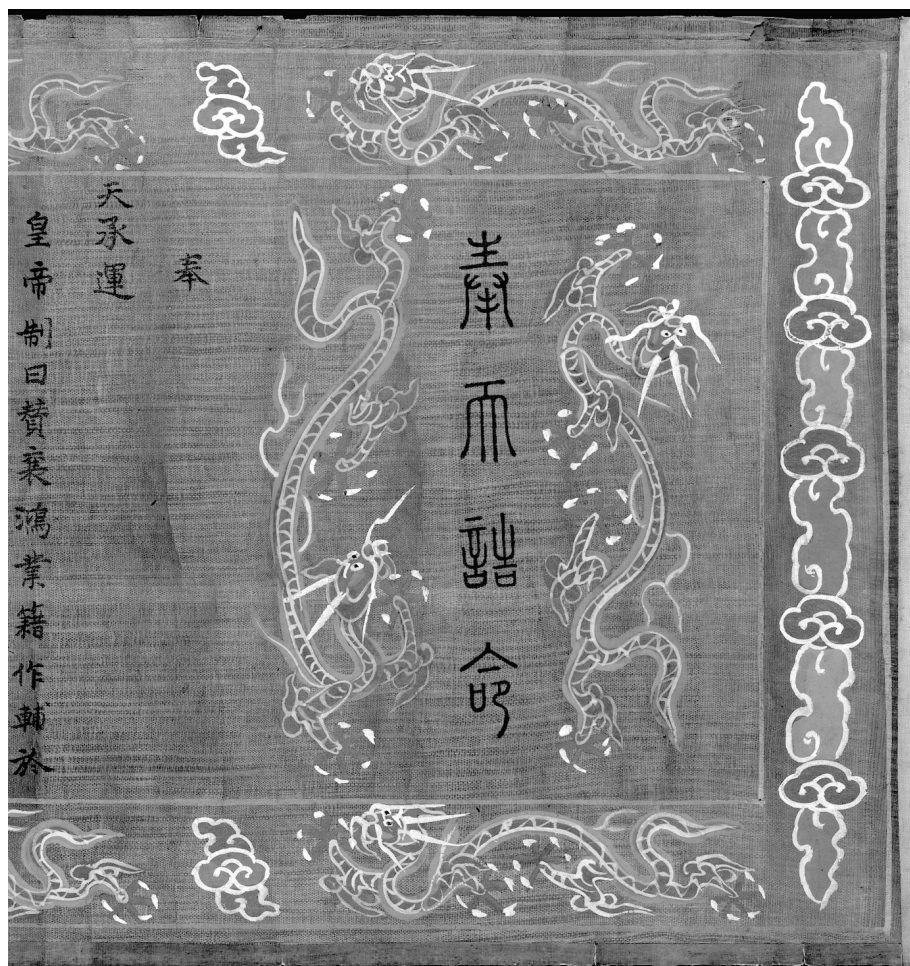 奉天誥命
奉
天承運
皇帝制曰贊襄鴻業籍作輔於